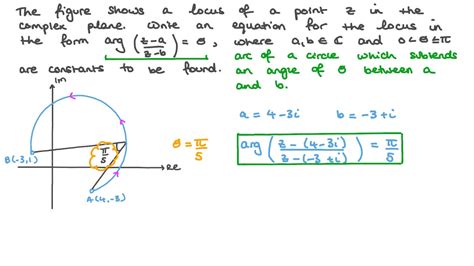 The figure shows a locus of a point z in the
complex plane. Write an equation for the locus in
the form arg (z-a/z-b) = θ, where a,b ∈ ℂ and 0<θ≤π
are constants to be found.
arc of a circle which subtends
an angle of θ between a
and b.
Im
a = 4-3i b = -3+i
B(-3,1)
π/5
θ = π/5
Re
A(4,-3)
arg (z-(4-3i)/z-(-3+i)) = π/5